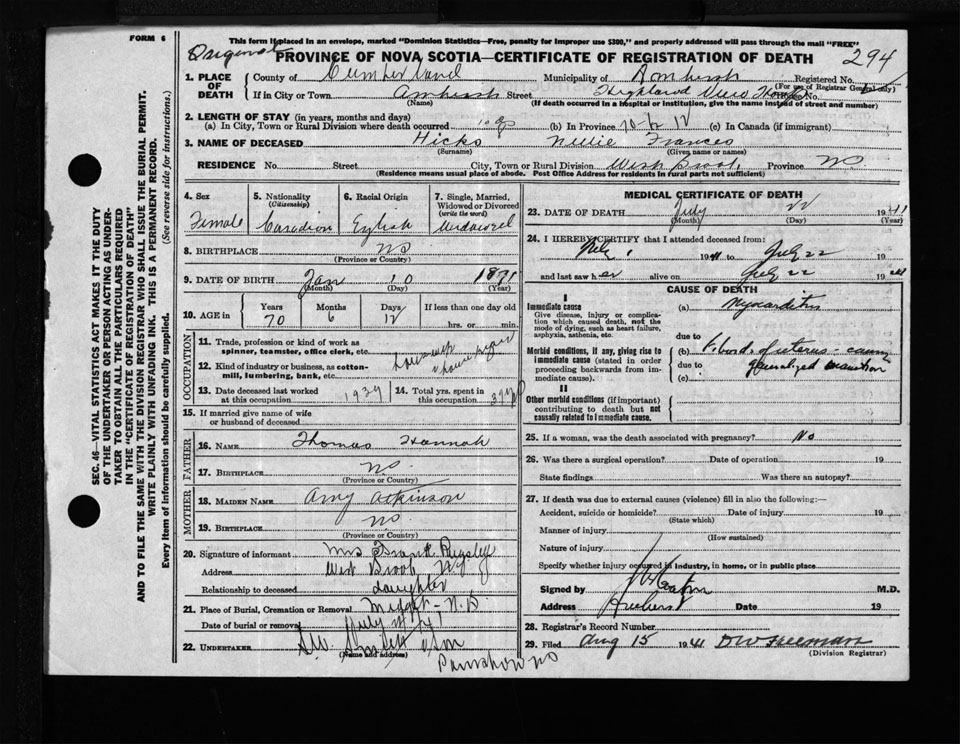 FORM 6
This form if placed in an envelope, marked "Dominion Statistics—Free, penalty for improper use $300," and properly addressed will pass through the mail "FREE"
Original
PROVINCE OF NOVA SCOTIA—CERTIFICATE OF REGISTRATION OF DEATH
294
1. PLACE OF DEATH
County of Cumberland Municipality of Amherst Registered No.
(For use of Registrar General only)
If in City or Town Amherst Street Highland View No.
(Name) (If death occurred in a hospital or institution, give the name instead of street and number)
2. LENGTH OF STAY (in years, months and days)
(a) In City, Town or Rural Division where death occurred (b) In Province 70-6-12 (c) In Canada (if immigrant)
3. NAME OF DECEASED Hicks Nellie Frances
(Surname) (Given name or names)
RESIDENCE No. Street City, Town or Rural Division West Brook, Province NS
(Residence means usual place of abode. Post Office Address for residents in rural parts not sufficient)
4. Sex Female
5. Nationality (Citizenship) Canadian
6. Racial Origin English
7. Single, Married, Widowed or Divorced (write the word) Widowed
8. BIRTHPLACE NS
(Province or Country)
9. DATE OF BIRTH Jan 10 1871
(Month) (Day) (Year)
10. AGE in Years 70 Months 6 Days 12 If less than one day old hrs. or min.
OCCUPATION
11. Trade, profession or kind of work as spinner, teamster, office clerk, etc.
12. Kind of industry or business, as cotton-mill, lumbering, bank, etc.
13. Date deceased last worked at this occupation 1939
14. Total yrs. spent in this occupation
15. If married give name of wife or husband of deceased
FATHER
16. NAME Thomas Hannah
17. BIRTHPLACE NS
(Province or Country)
MOTHER
18. MAIDEN NAME Amy Atkinson
19. BIRTHPLACE NS
(Province or Country)
20. Signature of informant Mrs Frank Pugsley
Address West Brook NS
Relationship to deceased daughter
21. Place of Burial, Cremation or Removal N.B.
Date of burial or removal July
22. UNDERTAKER S.W. Smith & Son
(Name and address)
Parrsboro NS
MEDICAL CERTIFICATE OF DEATH
23. DATE OF DEATH July 22 1941
(Month) (Day) (Year)
24. I HEREBY CERTIFY that I attended deceased from:
1941 to July 22
and last saw her alive on July 22 1941
CAUSE OF DEATH
I
Immediate cause (a) Myocarditis
Give disease, injury or complication which caused death, not the mode of dying, such as heart failure, asphyxia, asthenia, etc.
due to
Morbid conditions, if any, giving rise to immediate cause (stated in order proceeding backwards from immediate cause).
(b) Fibroids of uterus - causing
due to generalized
(c)
II
Other morbid conditions (if important) contributing to death but not causally related to immediate cause.
25. If a woman, was the death associated with pregnancy? No
26. Was there a surgical operation? Date of operation 19
State findings Was there an autopsy?
27. If death was due to external causes (violence) fill in also the following:—
Accident, suicide or homicide? Date of injury 19
(State which)
Manner of injury
(How sustained)
Nature of injury
Specify whether injury occurred in industry, in home, or in public place
Signed by M.D.
Address Amherst Date 19
28. Registrar's Record Number
29. Filed Aug 15 1941 DW Freeman
(Division Registrar)
SEC. 46—VITAL STATISTICS ACT MAKES IT THE DUTY
OF THE UNDERTAKER OR PERSON ACTING AS UNDER-
TAKER TO OBTAIN ALL THE PARTICULARS REQUIRED
IN THE "CERTIFICATE OF REGISTRATION OF DEATH"
AND TO FILE THE SAME WITH THE DIVISION REGISTRAR WHO SHALL ISSUE THE BURIAL PERMIT.
WRITE PLAINLY WITH UNFADING INK. THIS IS A PERMANENT RECORD.
Every item of information should be carefully supplied. (See reverse side for instructions.)